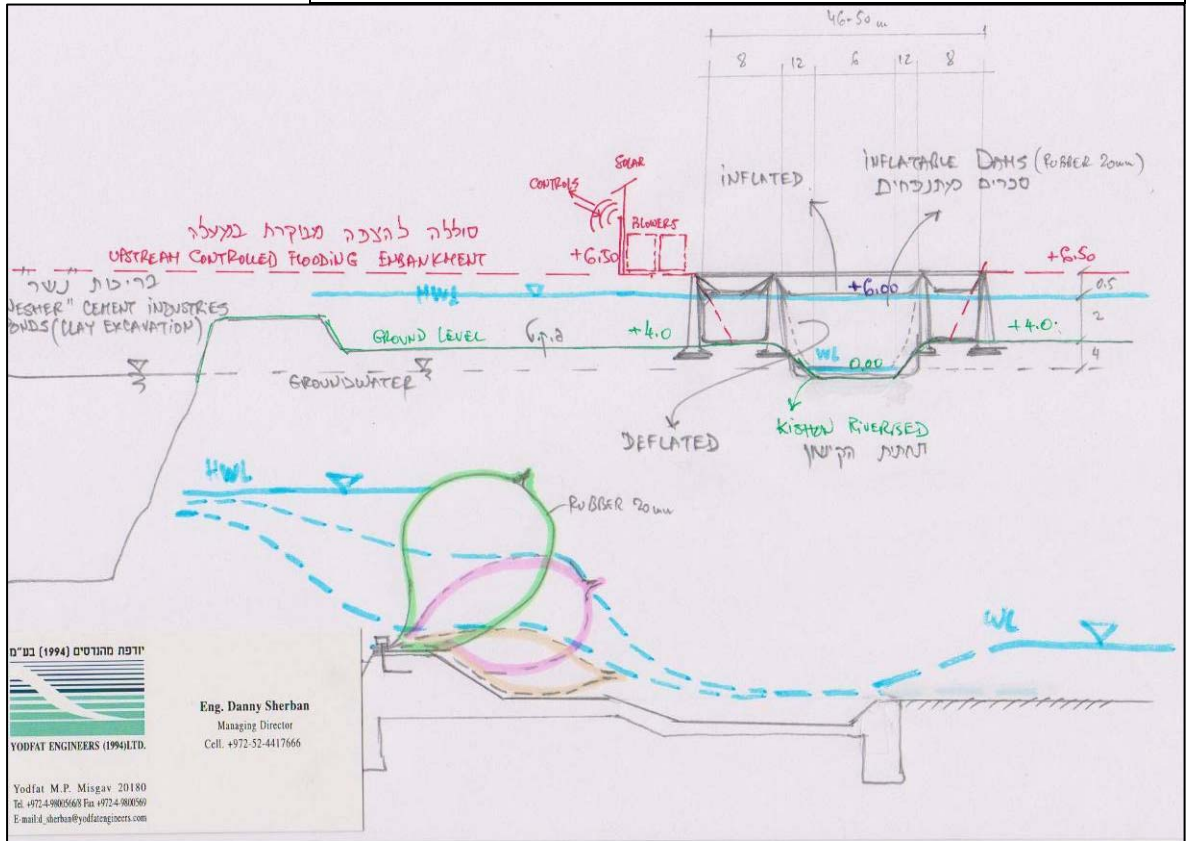 46-50 m
8 12 6 12 8
SOLAR
CONTROLS
BLOWERS
INFLATED
INFLATABLE DAMS (RUBBER 20mm)
סכרים מתנפחים
סוללה להצפה מבוקרת במעלה
UPSTREAM CONTROLLED FLOODING EMBANKMENT
+6.50
+6.50
בריכות נשר
NESHER" CEMENT INDUSTRIES
PONDS (CLAY EXCAVATION)
HWL
+6.00
0.5
2
4
GROUND LEVEL
+4.0
+4.0
WL
0.00
GROUNDWATER
DEFLATED
KISHON RIVERBED
תחתית הקישון
HWL
RUBBER 20mm
WL
יודפת מהנדסים (1994) בע"מ
YODFAT ENGINEERS (1994) LTD.
Eng. Danny Sherban
Managing Director
Cell. +972-52-4417666
Yodfat M.P. Misgav 20180
Tel. +972-4-9800566/8 Fax +972-4-9800569
E-mail:d_sherban@yodfatengineers.com